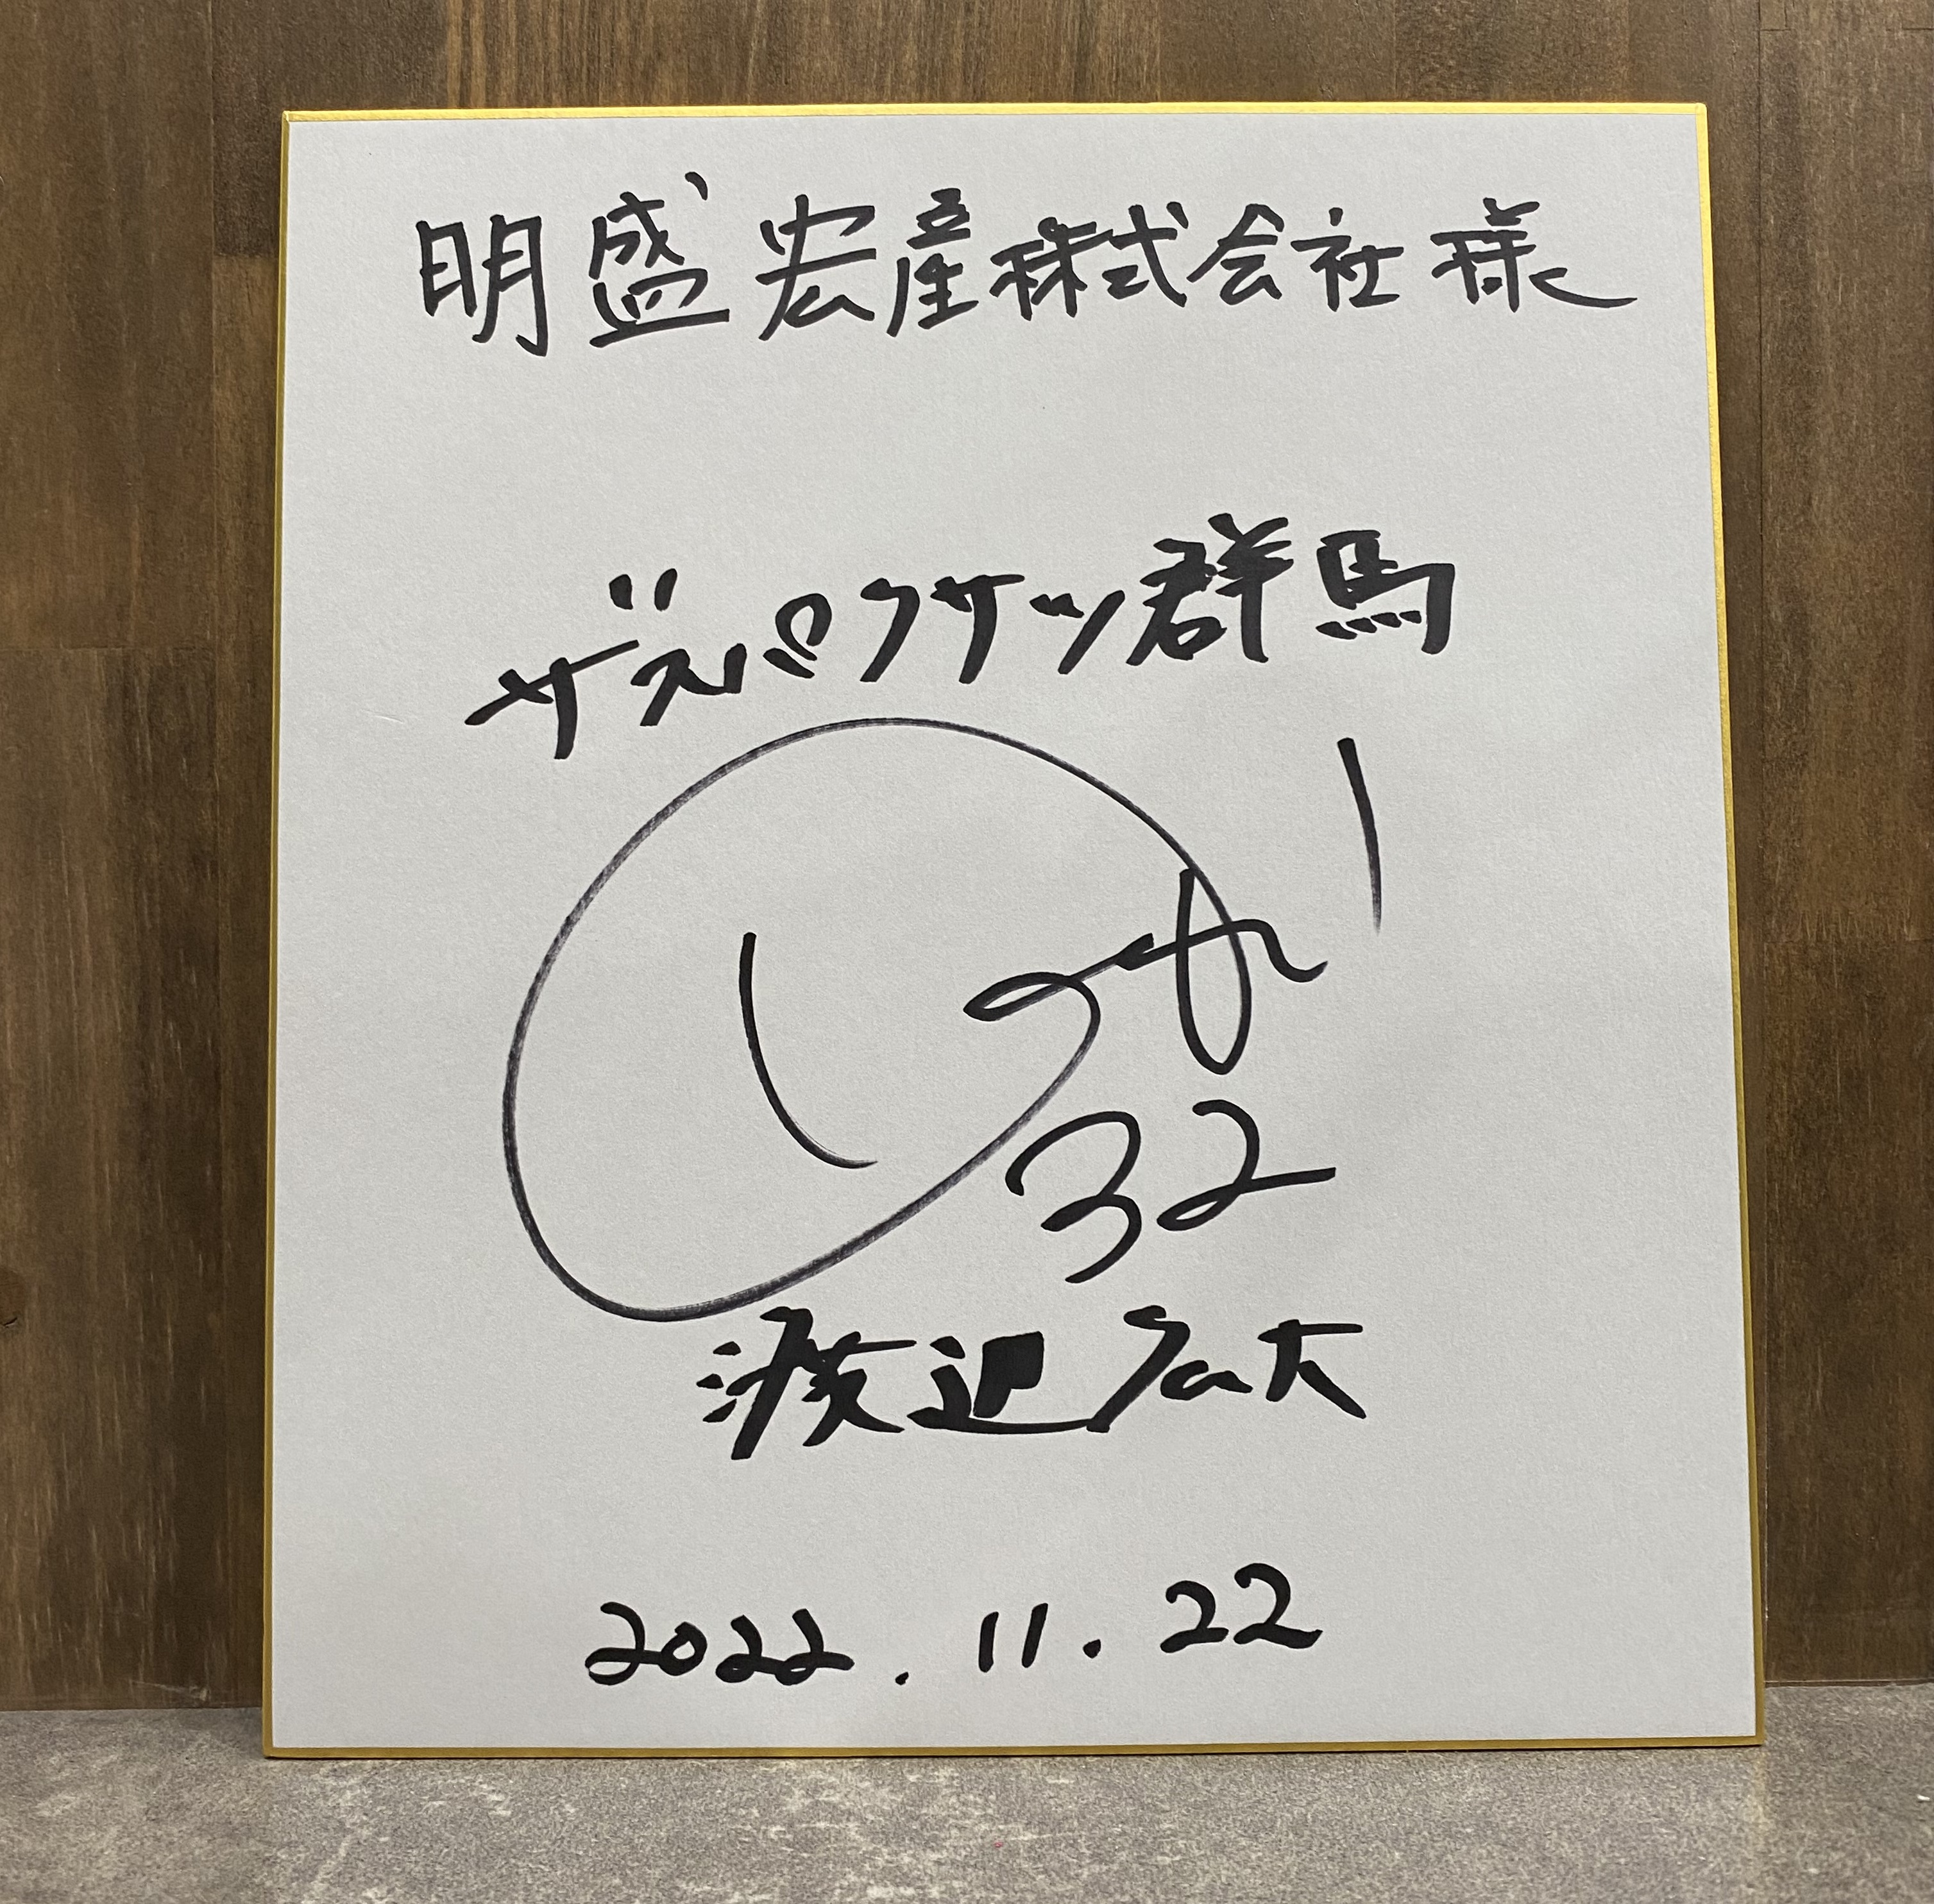 明盛宏産株式会社様
ザスパクサツ群馬
32
渡辺広大
2022.11.22